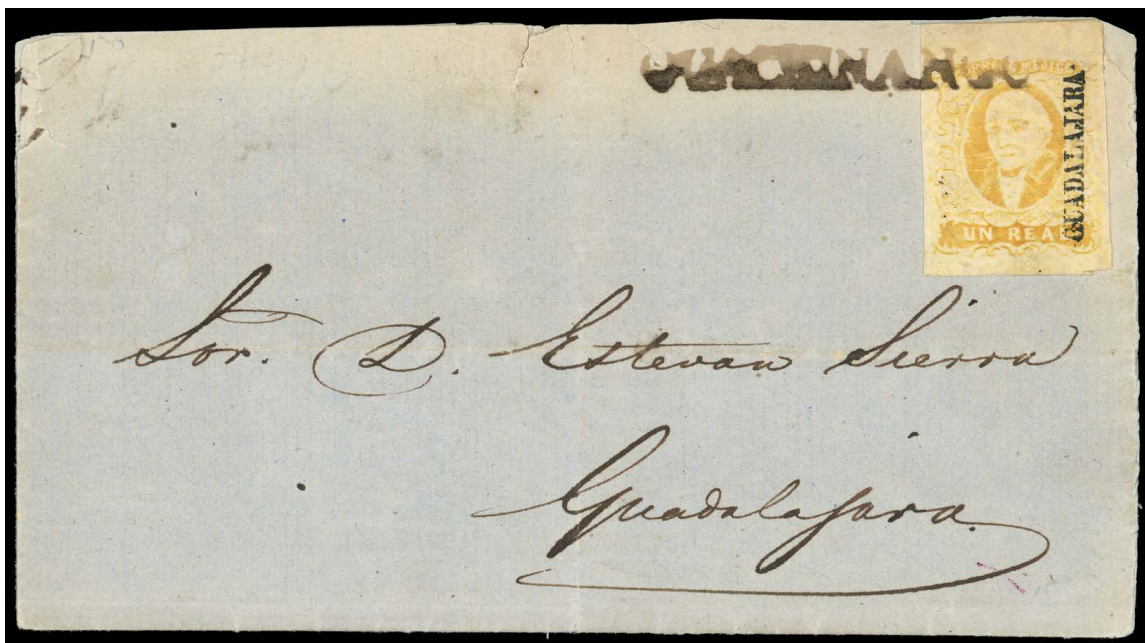 CORREOS MEJICO
GUADALAJARA
UN REAL
Sor. D. Estevan Sierra
Guadalajara.